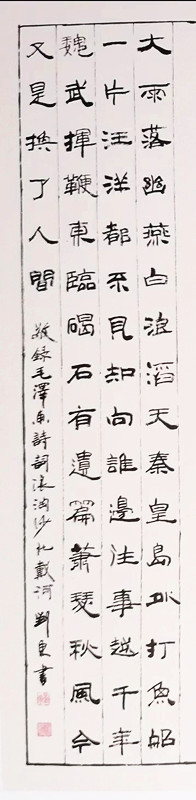 大雨落幽燕白浪滔天秦皇島外打魚船
一片汪洋都不見知向誰邊往事越千年
魏武揮鞭東臨碣石有遺篇蕭瑟秋風今
又是換了人間
敬錄毛澤東詩詞浪淘沙北戴河 劉書